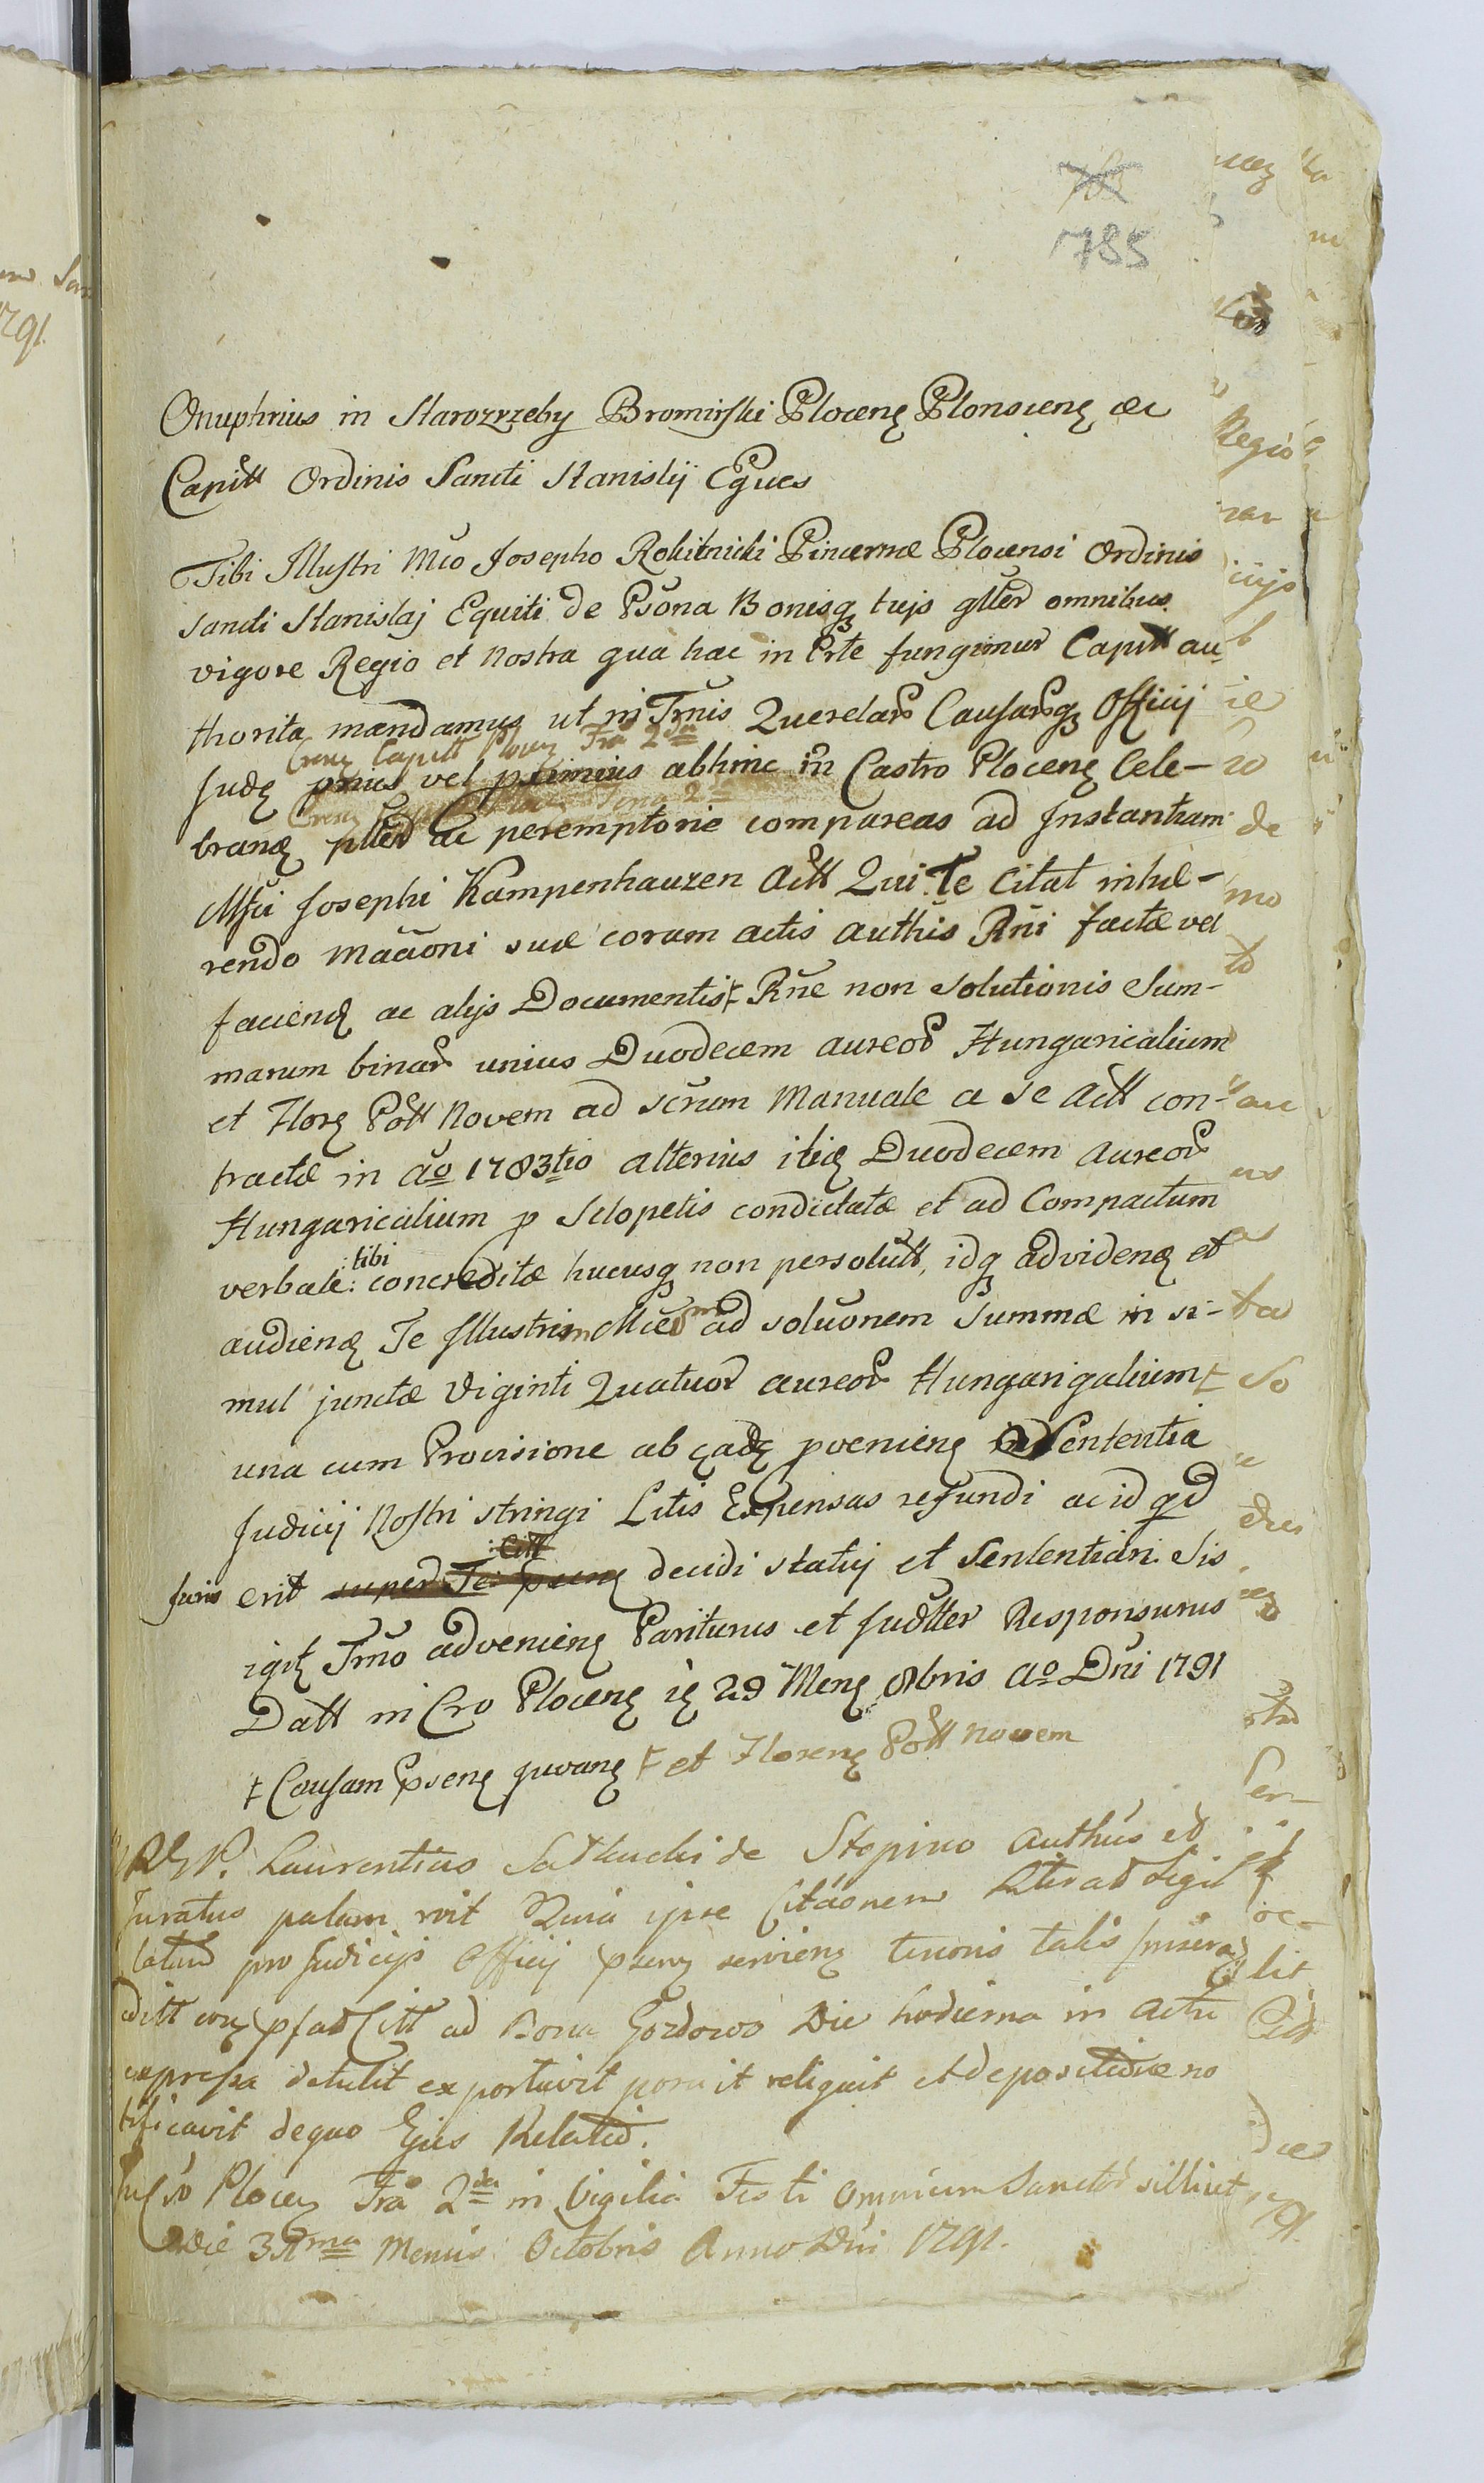 785
Onuphrius in Starozrzeby Bromirski Plocen Plonscen ac
Capitt Ordinis Sancti Stanislij Eques
Tibi Illustri Mco Josepho Rokitnicki Pincernæ Plocensi Ordinis
Sancti Stanislaj Equiti de Psona Bonisq tujs gtter omnibus
vigore Regio et Nostra qua hac in Prte fungimur Capitt au-
thorita mandamus ut in Trnis Querelar Causarq Officij
Crens Capitt Plocen Fra 2da
Jude pnus vel primius abhinc in Castro Plocen Cele-
bran ptter ac peremptorie compareas ad Instantiam
Mfci Josephi Kampenhauzen Actt Qui Te Citat inhæ-
rendo Maaoni suæ coram actis authis Rni factæ vel
facien ac alijs Documentis Rne non solutionis Sum-
marum binar unius Duodecem aureor Hungaricalium
et Flor Pott Novem ad scrum Manuale a se Actt con-
tractæ in Ao 1783tio alterius itid Duodecem Aureor
Hungaricalium p Sclopetis condictatæ et ad Compactum
verbale :tibi: concreditæ hucusq non persolutt, idq ad viden et
audien Te Illustrem Mcum ad soluonem Summæ in si-
mul junctæ Viginti Quatuor aureor Hungarigalium
una cum Provisione ab ead pvenien Sententia
Judicij Nostri stringi Litis Expensas refundi ac id qd
Juris erit super Te :Citt: decidi statuj et Sententiari. Sis
igit Trno advenien Pariturus et Judtter Responsurus
Datt in Cro Plocen ie 29 Men 8bris Ao Dni 1791
Causam psen juvan et Floren Pott Novem
P. Laurentius Sadkucki de Stopino Authus et
Juratus palam roit Quia ipse Citaonem Literat Sigil
latam pro Judicijs Officij psen servien tenoris talis
ad Bona Gozdowo Die hodierna in Actu
expressa detulit exportavit posuit reliquit et depositione no
tificavit de quo Ejus Relatio.
Plocen Fra 2da in Vigilia Festi Omnium Sanctor silliut
Die 31ma Mensis Octobris Anno Dni 1791.